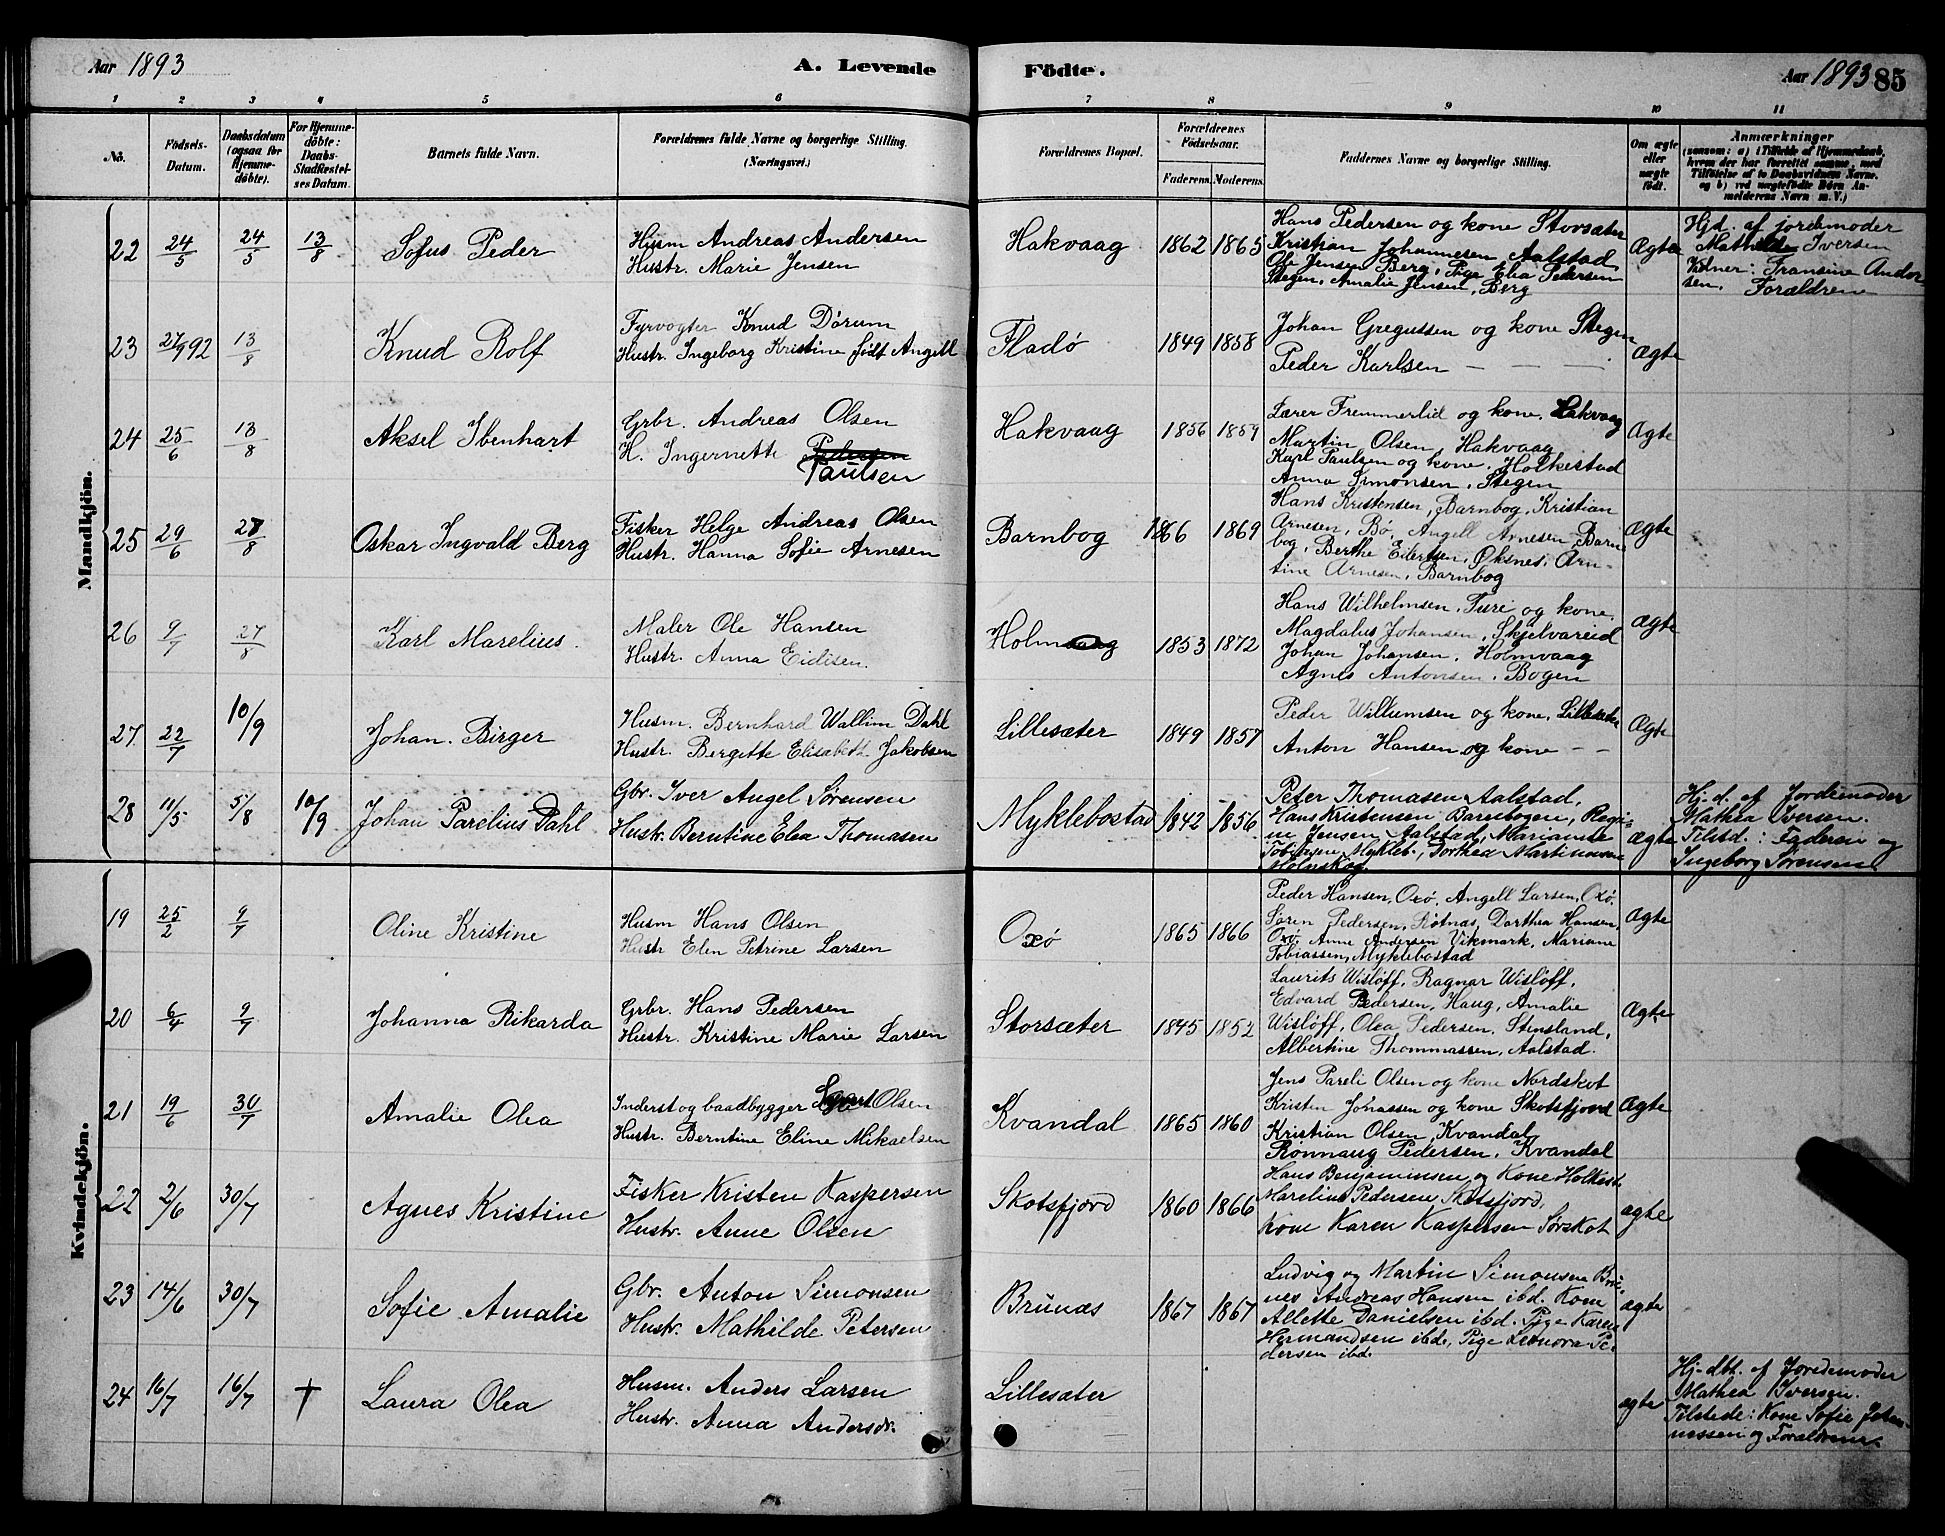 Aar 1893
A. Levende
Födte.
Aar 1893 85
1 2 3 4 5 6 7 8 9 10 11
No.
Födsels-
Datum.
Daabsdatum
(ogsaa for
Hjemme-
döbte).
For Hjemme-
döbte:
Daabs-
Stadfæstel-
ses Datum.
Barnets fulde Navn.
Forældrenes fulde Navne og borgerlige Stilling.
(Næringsvei.)
Forældrenes Bopæl.
Forældrenes
Födselsaar.
Faderens. Moderens.
Faddernes Navne og borgerlige Stilling.
Om ægte
eller
uægte
födt.
Anmærkninger
(saasom: a) i Tilfælde af Hjemmedaab,
hvem der har forrettet samme, med
Tilföielse af to Daabsvidners Navne,
og b) ved uægtefödte Börn An-
melderens Navn m. V.)
Mandkjön.
22 24/5 24/5 13/8 Sofus Peder
Husm Andreas Andersen
Hustr. Marie Jensen
Hakvaag 1862 1865
Hans Pedersen og kone Storsæter
Kristian Johannesen Aalstad
Ole Jensen Berg, Pige Elea Pedersen
Stegen, Amalie Jensen, Berg
Ægte
Hjd. af jordemoder
Mathilde Iversen
Vidner: Fransine Ander
sen. Forældrene
23 27/9 92 13/8 Knud Rolf
Fyrvogter Knud Dørum
Hustr. Ingeborg Kristine født Angell
Fladø 1849 1858
Johan Gregussen og kone Stegen
Peder Karlsen — — —
Ægte
24 25/6 13/8 Aksel Ibenhart
Grbr. Andreas Olsen
H. Ingernette Pedersen
Paulsen
Hakvaag 1856 1859
Lærer Fremmerlid og kone, Lakvaag
Martin Olsen, Hakvaag
Karl Paulsen og kone, Holkestad
Anna Simonsen, Stegen
Ægte
25 29/6 27/8 Oskar Ingvald Berg
Fisker Helge Andreas Olsen
Hustr. Hanna Sofie Arnesen
Barnbog 1866 1869
Hans Kristensen, Barnbog, Kristian
Arnesen, Bø, Angell Arnesen Barn
bog, Berthe Eilertsen, Øksnes, Arn-
tine Arnesen, Barnbog
Ægte
26 9/7 27/8 Karl Marelius.
Maler Ole Hansen
Hustr. Anna Eidisen.
Holmvaag 1853 1872
Hans Wilhelmsen, Turi og kone,
Magdalus Johansen, Skjelvareid
Johan Johansen, Holmvaag
Agnes Antonsen, Bogen
Ægte
27. 22/7 10/9 Johan. Birger
Husm. Bernhard Wallim Dahl
Hustr. Bergitte Elisabeth Jakobsen
Lillesæter 1849 1857
Peder Willumsen og kone, Lillesæter
Anton Hansen og kone — —
Ægte
28 11/5 5/8 10/9 Johan Parelius Dahl
Gbr. Iver Angel Sørensen
Hustr. Berntine Elea Thomasen
Myklebostad 1842 1856
Peter Thomasen Aalstad,
Hans Kristensen, Barnbogen, Regi-
ne Jensen Aalstad, Marianne
Tobiasen Mykleb., Dorthea Martinussen
Holmskog.
Ægte
Hj.d. af Jordemoder
Mathea Iversen.
Tilstd.: Faderen og
Ingeborg Sørensen
Kvindekjön.
19 25/2 9/7 Oline Kristine
Husm Hans Olsen
Hustr Elen Petrine Larsen
Oxø 1865 1866
Peder Hansen, Oxø, Angell Larsen, Oxø,
Søren Pedersen, Røtnes, Dorthea Hansen,
Oxø, Anne Andersen Vikmark, Mariane
Tobiassen, Myklebostad
Ægte
20 6/4 9/7 Johanna Rikarda
Grbr. Hans Pedersen
Hustr. Kristine Marie Larsen
Storsæter 1845 1852
Laurits Wisløff, Ragnar Wisløff,
Edvard Pedersen, Haug, Amalie
Wisløff, Olea Pedersen, Stensland,
Albertine Thommassen, Aalstad.
Ægte
21 19/6 30/7 Amalie Olea
Inderst og baadbygger Olsen
Hustr. Berntine Eline Mikaelsen
Kvandal 1865 1860
Jens Pareli Olsen og kone Nordskot
Kristen Jonassen og kone Skotsfjord
Kristian Olsen, Kvandal
Rønnaug Pedersen, Kvandal
Ægte
22 2/6 30/7 Agnes Kristine
Fisker Kristen Kaspersen
Hustr. Anne Olsen
Skotsfjord 1860 1866
Hans Benjaminsen og Kone Holkest.
Marelius Pedersen Skotsfjord,
Kone Karen Kaspersen Sørskot
ægte
23 14/6 30/7 Sofie Amalie
Gbr. Anton Simonsen
Hustr. Mathilde Petersen
Brunæs 1867 1867
Ludvig og Martin Simonsen Bru-
næs Andreas Hansen ibd. Kone
Allette Danielsen ibd. Pige Karen
Hermandsen ibd., Pige Leonora Pe-
dersen ibd.
ægte
24 16/7 16/7 † Laura Olea
Husm. Anders Larsen
Hustr. Anna Andersdr.
Lillesæter
ægte
Hj-dbt. af Jordemoder
Mathea Iversen.
Tilstede: Kone Sofie Johan-
nessen og Forældrene.